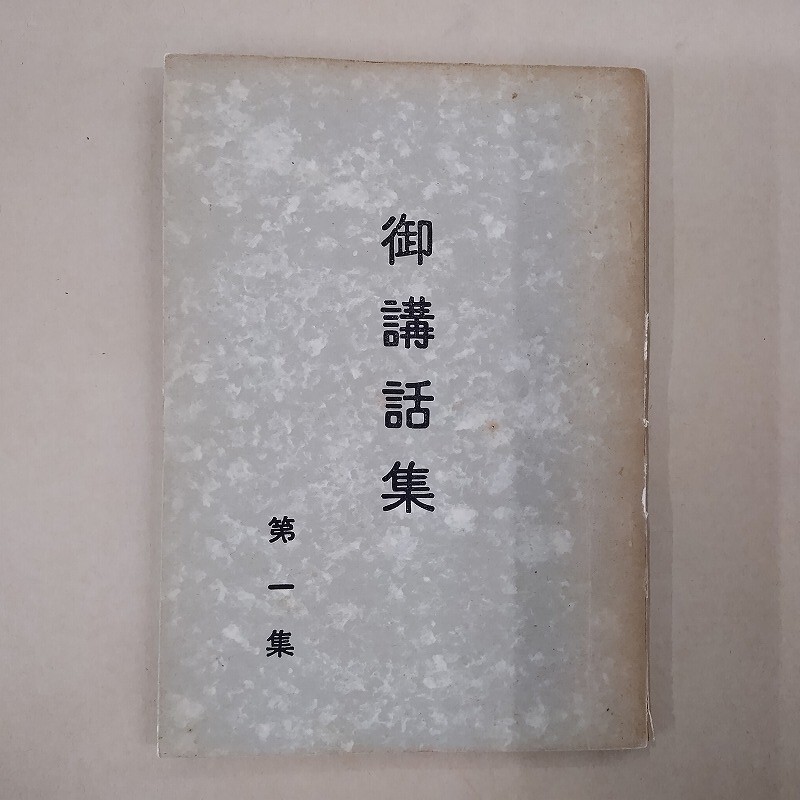 御講話集
第一集